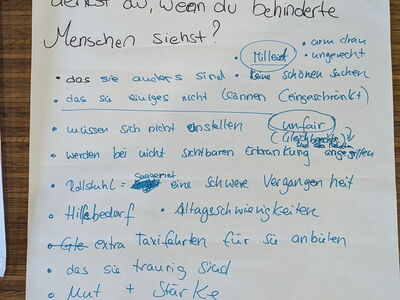 denkst du, wenn du behinderte
Menschen siehst?
• Mitleid
• arm dran
• ungerecht
• das sie anders sind
• keine schönen sachen
• das sie einiges nicht können (eingeschränkt)
• müssen sich nicht anstellen
unfair
• werden bei nicht sichtbaren Erkrankung angegriffen
• Rollstuhl = suggeriert eine schwere Vergangenheit
• Hilfsbedarf
• Altagsschwierigkeiten
• extra Taxifahrten für sie anbieten
• das sie traurig sind
• Mut + Stärke